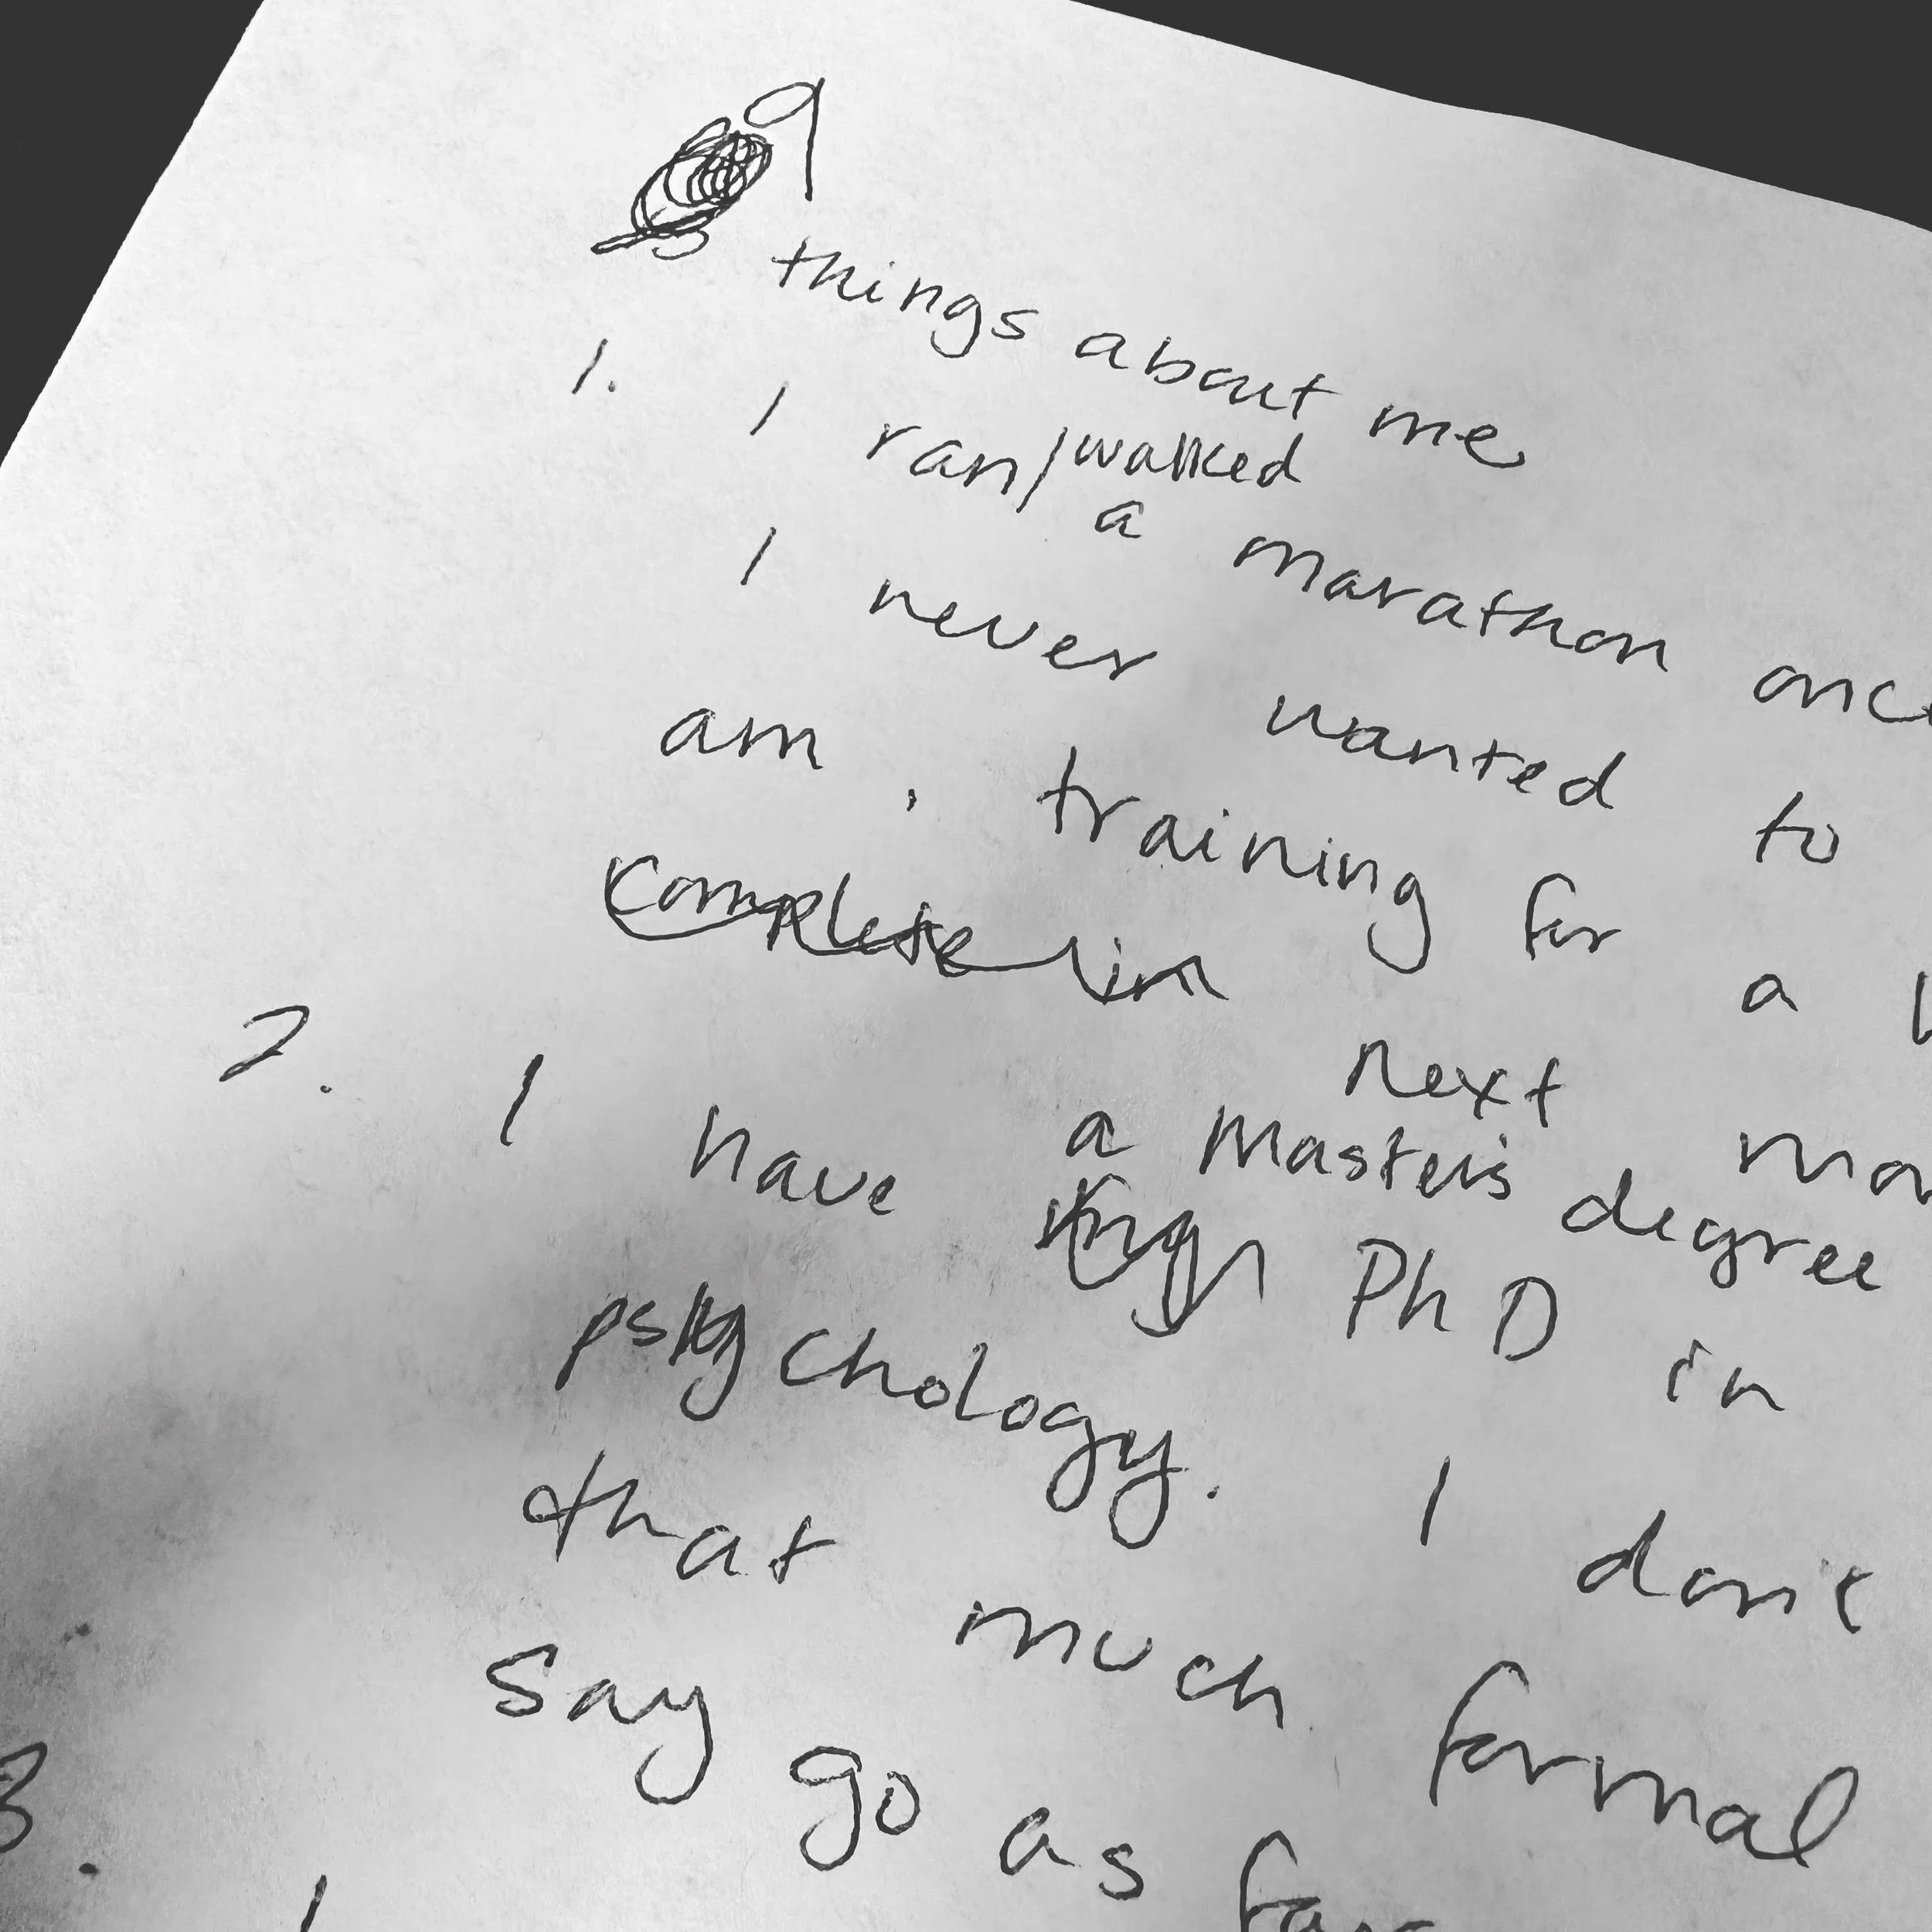 9
things about me
1. I ran/walked a marathon onc
I never wanted to
am, training for a
complete in next mo
2. I have a masters degree
PhD in
psychology. I don't
that much formal
say go as far
3. I